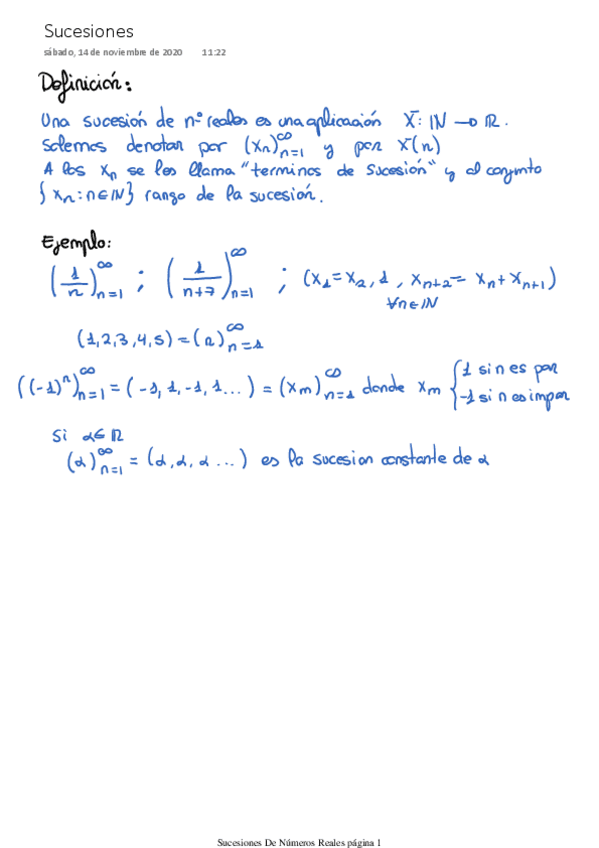 Sucesiones
sábado, 14 de noviembre de 2020 11:22
Definición:
Una sucesión de nº reales es una aplicación X̄: ℕ → ℝ.
Solemos denotar por (xn)_{n=1}^∞ y por X̄(n)
A los xn se les llama "terminos de sucesión" y al conjunto
{xn : n∈ℕ} rango de la sucesión.
Ejemplo:
(1/n)_{n=1}^∞ ; (1/(n+7))_{n=1}^∞ ; (x1=x2,1, x_{n+2}= xn+x_{n+1})
∀n∈ℕ
(1,2,3,4,5)=(n)_{n=1}^∞
((-1)^n)_{n=1}^∞ = (-1, 1, -1, 1...) = (xm)_{n=1}^∞ donde xm { 1 si n es par
-1 si n es impar
Si α∈ℝ
(α)_{n=1}^∞ = (α,α,α...) es la sucesion constante de α
Sucesiones De Números Reales página 1